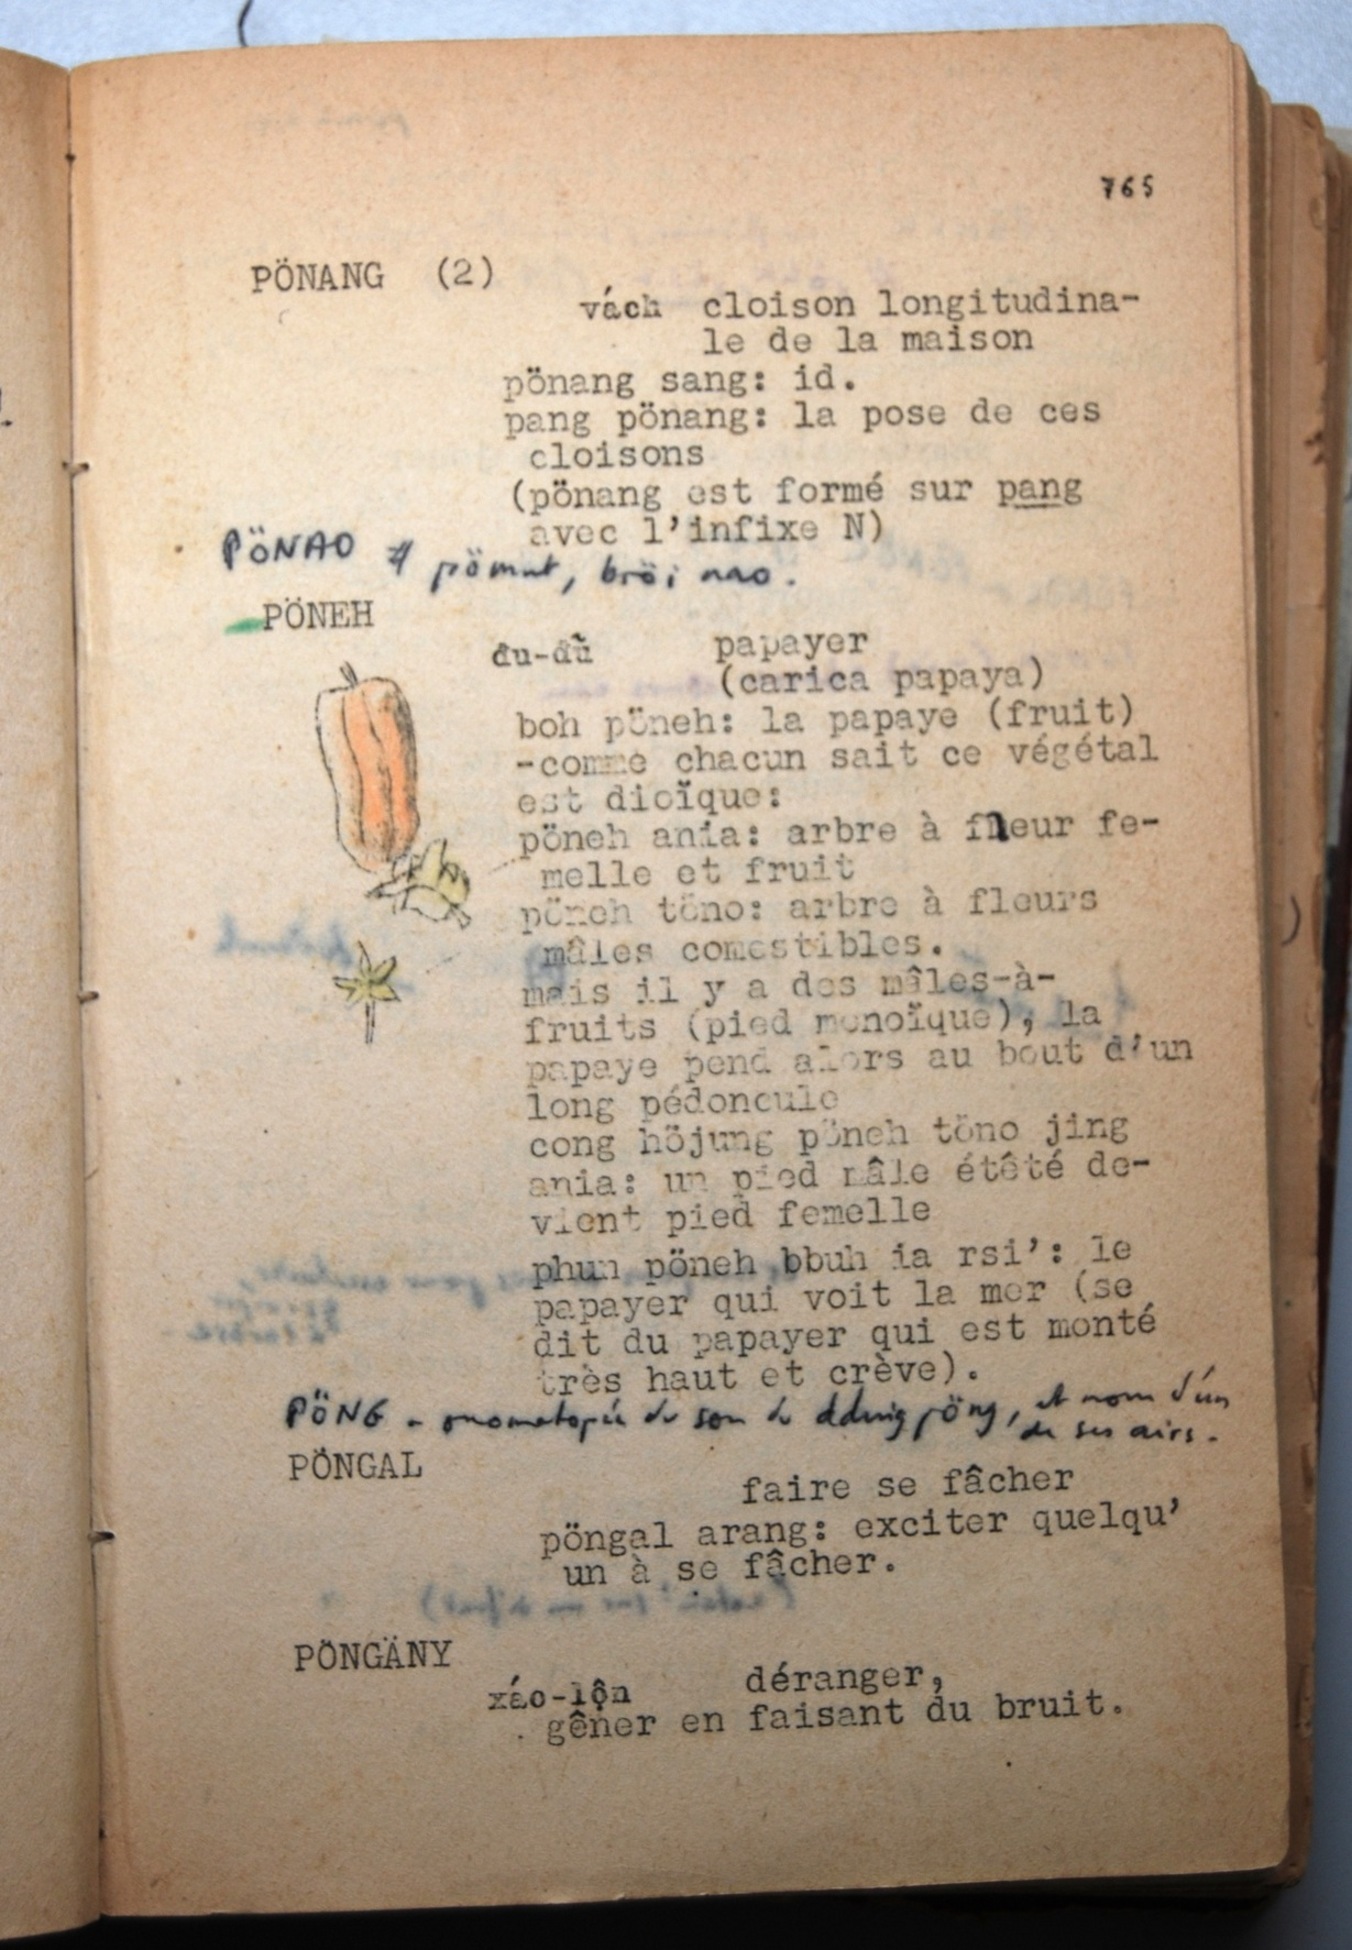 765
PÖNANG (2)
vách cloison longitudina-
le de la maison
pönang sang: id.
pang pönang: la pose de ces
cloisons
(pönang est formé sur pang
avec l'infixe N)
PÖNAO # pömut, bröi nao.
PÖNEH
đu-đủ papayer
(carica papaya)
boh pöneh: la papaye (fruit)
-comme chacun sait ce végétal
est dioïque:
pöneh ania: arbre à fleur fe-
melle et fruit
pöneh töno: arbre à fleurs
mâles comestibles.
mais il y a des mâles-à-
fruits (pied monoïque), la
papaye pend alors au bout d'un
long pédoncule
cong höjung pöneh töno jing
ania: un pied mâle étêté de-
vient pied femelle
phun pöneh bbuh ia rsi': le
papayer qui voit la mer (se
dit du papayer qui est monté
très haut et crève).
PÖNG - onomatopée du son du ddung pöng, et nom d'un
de ses airs.
PÖNGAL
faire se fâcher
pöngal arang: exciter quelqu'
un à se fâcher.
PÖNGÄNY
xáo-lộn déranger,
gêner en faisant du bruit.